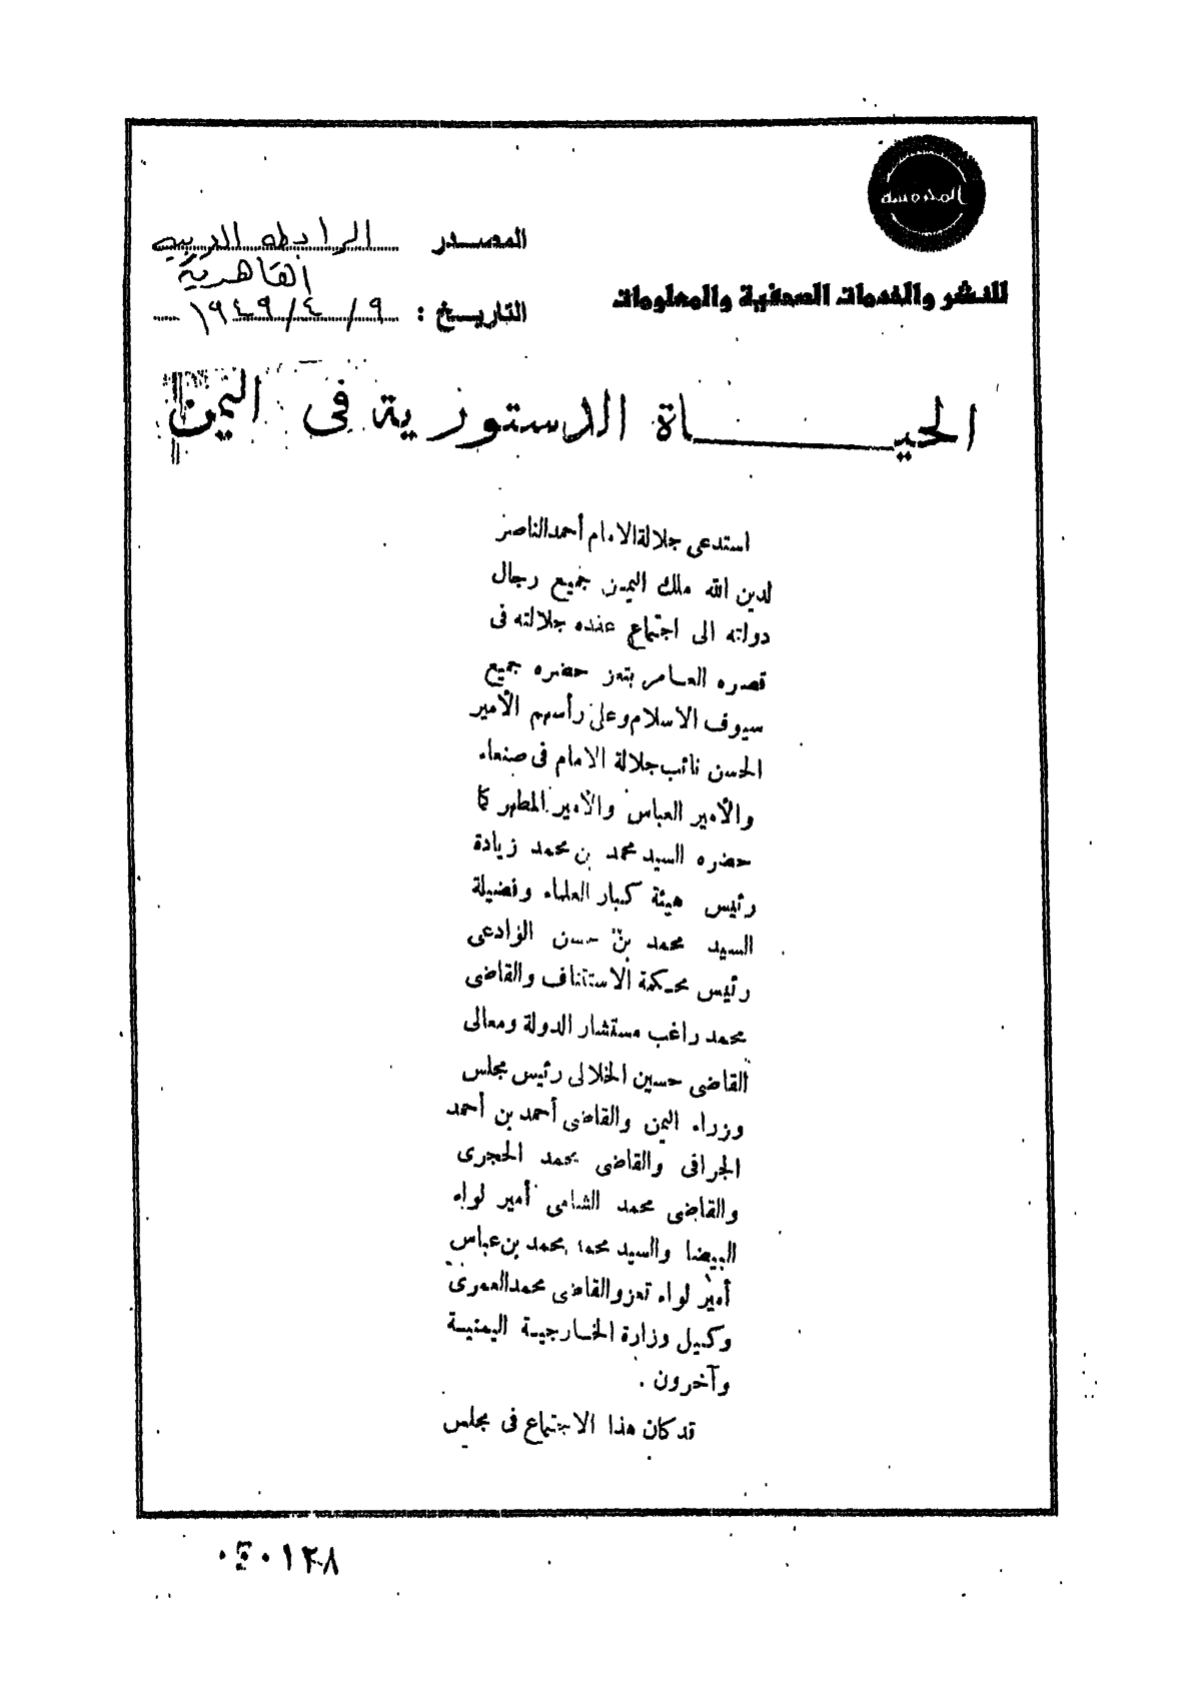 المحروسة
للنشر والخدمات الصحفية والمعلومات
المصدر الرابطه العربيه
القاهرية
التاريخ : ٩ / ٤ / ١٩٤٩
الحياة الدستورية فى اليمن
استدعى جلالة الامام أحمد الناصر
لدين الله ملك اليمن جميع رجال
دولته الى اجتماع عقده جلالته فى
قصره العامر بتعز حضره جميع
سيوف الاسلام وعلى رأسهم الأمير
الحسن نائب جلالة الامام فى صنعاء
والأمير العباس والأمير المطهر كما
حضره السيد محمد بن محمد زبادة
رئيس هيئة كبار العلماء وفضيلة
السيد محمد بن حسن الوادعى
رئيس محكمة الاستئناف والقاضى
محمد راغب مستشار الدولة ومعالى
القاضى حسين الحلالى رئيس مجلس
وزراء اليمن والقاضى أحمد بن أحمد
الجرافى والقاضى محمد الحجرى
والقاضى محمد الشامى أمير لواء
البيضا والسيد محمد محمد بن عباس
أمير لواء تعز والقاضى محمد العمرى
وكيل وزارة الخارجية اليمنية
وآخرون .
قد كان هذا الاجتماع فى مجلس
١٢٨